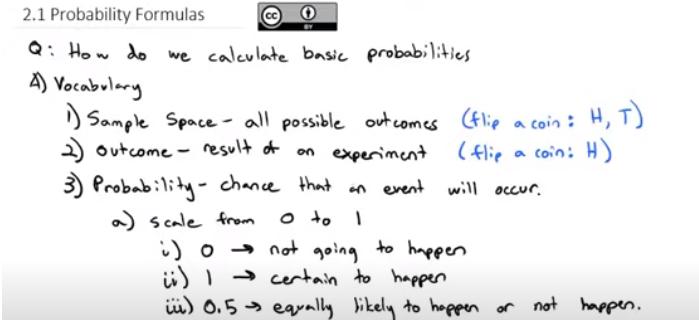 2.1 Probability Formulas
cc BY
Q: How do we calculate basic probabilities
A) Vocabulary
1) Sample Space - all possible outcomes (flip a coin: H, T)
2) Outcome - result of an experiment (flip a coin: H)
3) Probability - chance that an event will occur.
a) scale from 0 to 1
i) 0 → not going to happen
ii) 1 → certain to happen
iii) 0.5 → equally likely to happen or not happen.